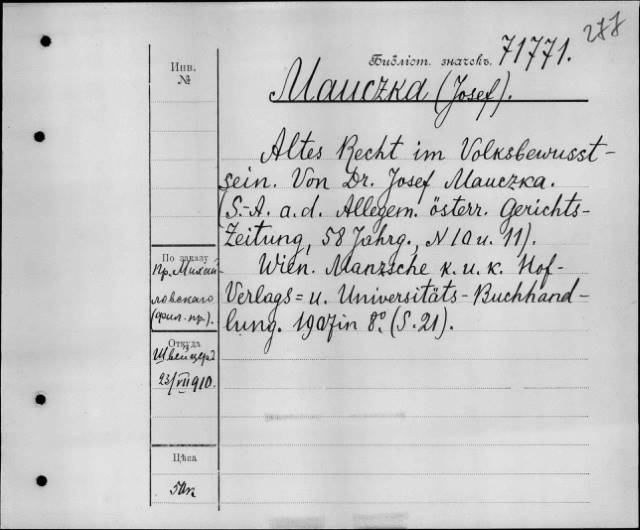 277
Библіот. значокъ. 71771.
Инв.
№
Mauczka (Josef).
Altes Recht im Volksbewusst-
sein. Von Dr. Josef Mauczka.
(S.-A. a. d. Allegem. österr. Gerichts-
Zeitung, 58 Jahrg., N 10 u. 11).
Wien. Manzsche k. u. k. Hof-
Verlags= u. Universitäts-Buchhand-
lung. 1907 in 8° (S. 21).
По заказу
Пр. Михай-
ловскаго
(фил. пр.).
Откуда
Швейцер
23/VII 910.
Цѣна
50к